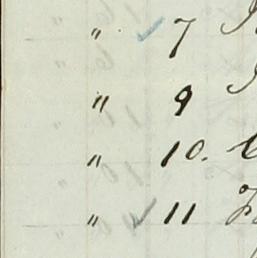 " 7
" 9
" 10.
" 11